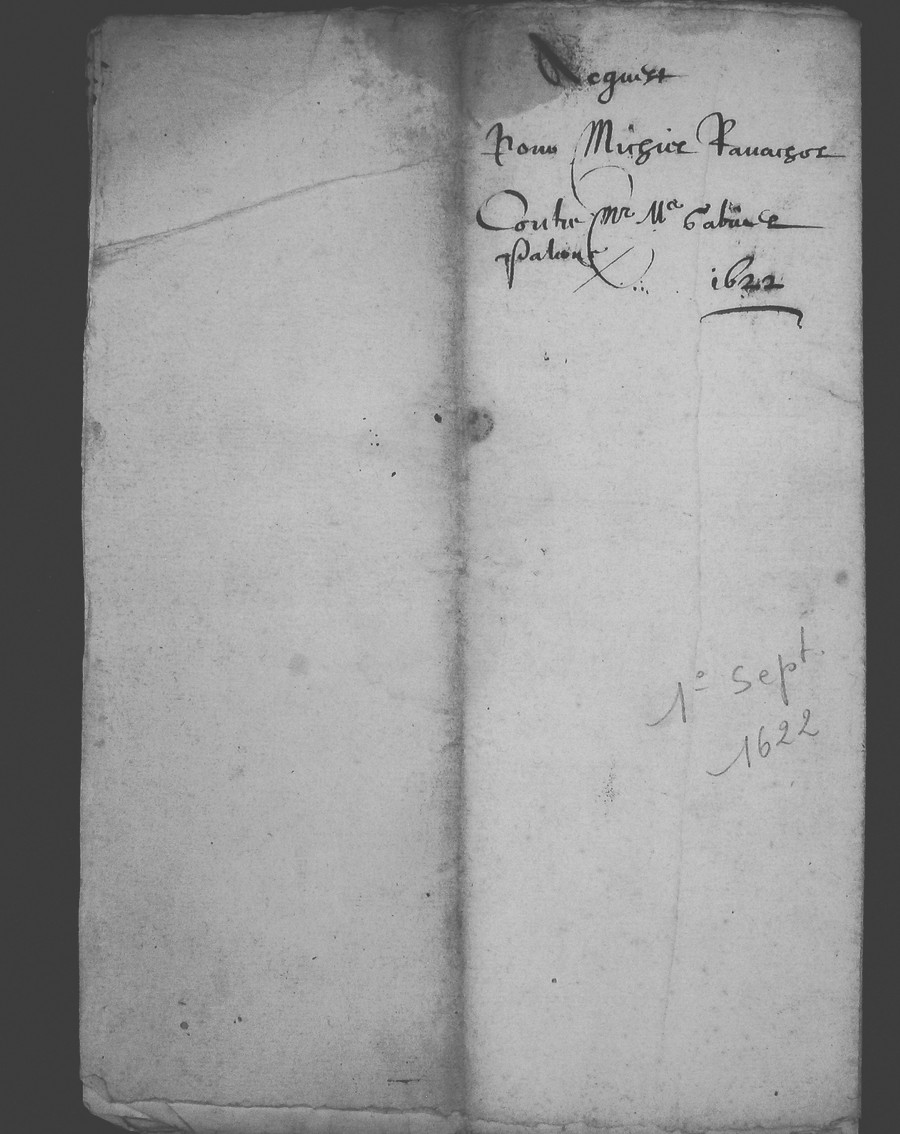 Requeste
Pour Michiel Ravachot
Contre Mr Me Gabriel
Patout
1622
1º Sept.
1622